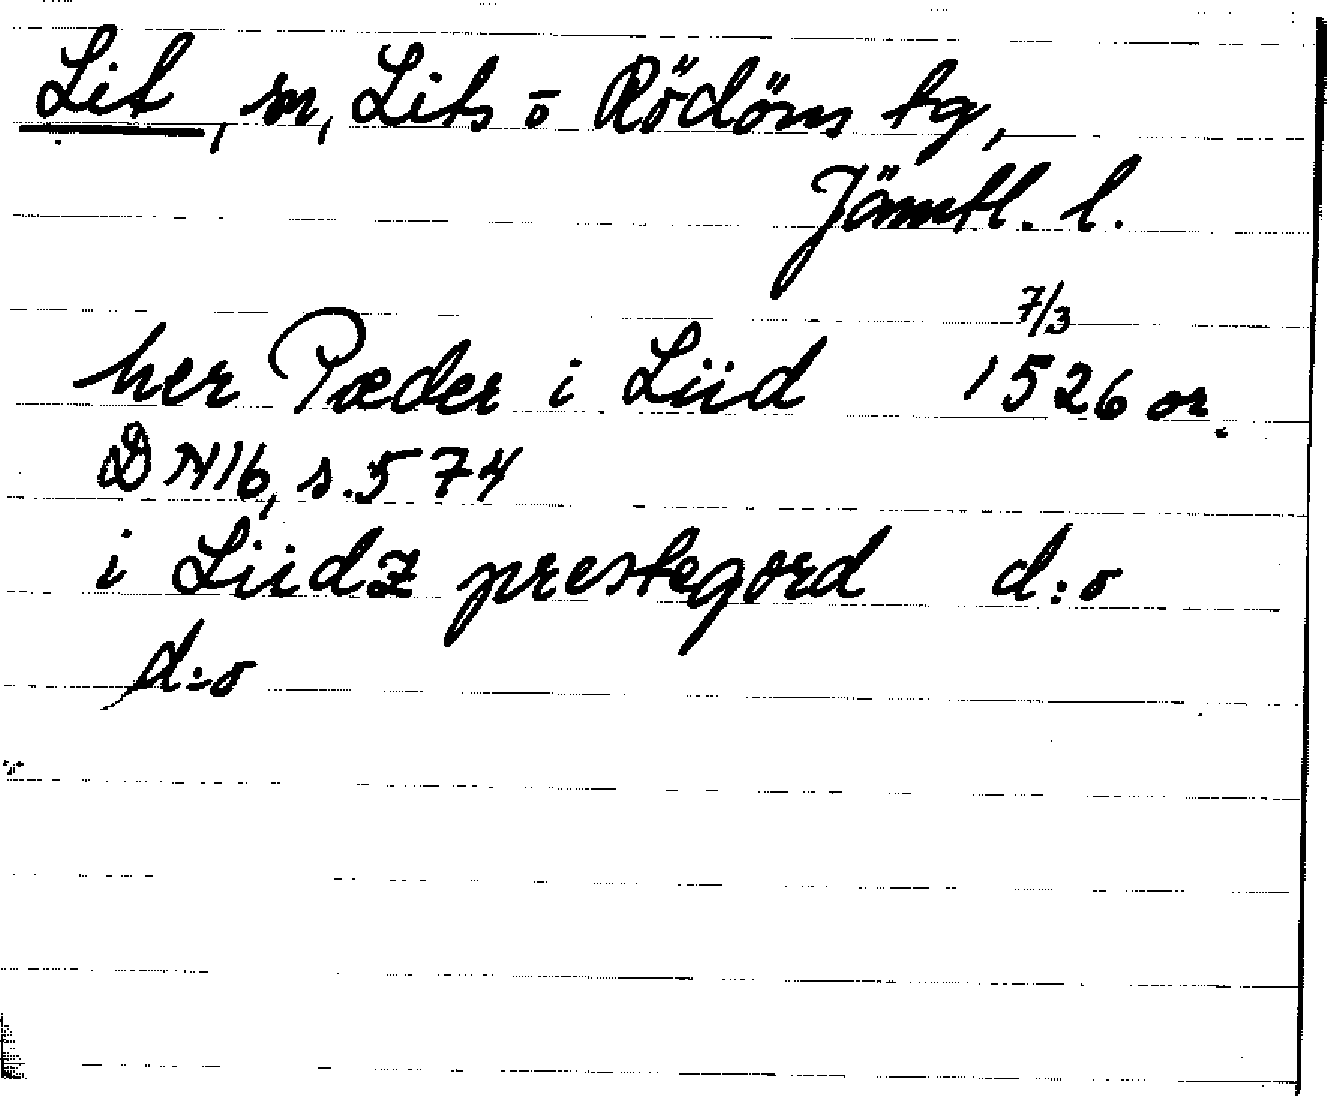 Lit, sn, Lits o Rödöns tg,
Jämtl. l.
her Pæder i Liid 7/3 1526 or.
DN 16, s. 574
i Liidz prestegord d:o
d:o